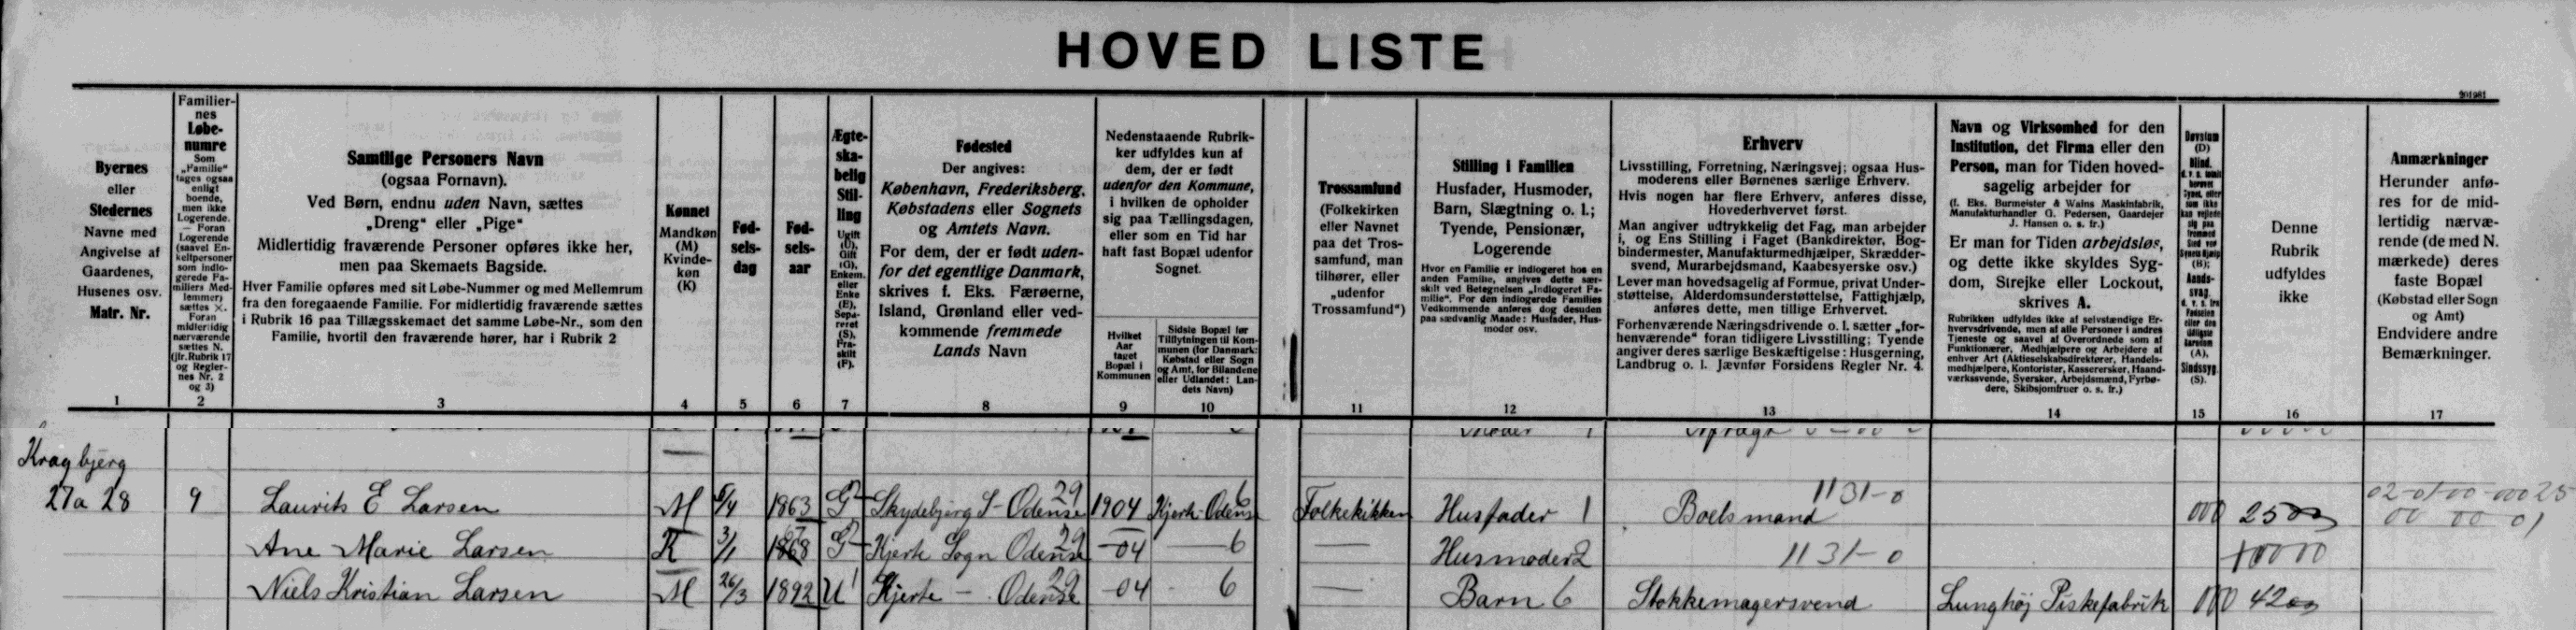 HOVED LISTE
201981
Byernes
eller
Stedernes
Navne med
Angivelse af
Gaardenes,
Husenes osv.
Matr. Nr.
1
Familier-
nes
Løbe-
numre
Som
„Familie“
tages ogsaa
enligt
boende,
men ikke
Logerende.
— Foran
Logerende
(saavel En-
keltpersoner
som indlo-
gerede Fa-
miliers Med-
lemmer)
sættes ×.
Foran
midlertidig
nærværende
sættes N.
(jfr. Rubrik 17
og Regler-
nes Nr. 2
og 3)
2
Samtlige Personers Navn
(ogsaa Fornavn).
Ved Børn, endnu uden Navn, sættes
„Dreng“ eller „Pige“
Midlertidig fraværende Personer opføres ikke her,
men paa Skemaets Bagside.
Hver Familie opføres med sit Løbe-Nummer og med Mellemrum
fra den foregaaende Familie. For midlertidig fraværende sættes
i Rubrik 16 paa Tillægsskemaet det samme Løbe-Nr., som den
Familie, hvortil den fraværende hører, har i Rubrik 2
3
Kønnet
Mandkøn
(M)
Kvinde-
køn
(K)
4
Fød-
sels-
dag
5
Fød-
sels-
aar
6
Ægte-
ska-
belig
Stil-
ling
Ugift
(U),
Gift
(G),
Enkem.
eller
Enke
(E),
Sepa-
reret
(S),
Fra-
skilt
(F).
7
Fødested
Der angives:
København, Frederiksberg,
Købstadens eller Sognets
og Amtets Navn.
For dem, der er født uden-
for det egentlige Danmark,
skrives f. Eks. Færøerne,
Island, Grønland eller ved-
kommende fremmede
Lands Navn
8
Nedenstaaende Rubrik-
ker udfyldes kun af
dem, der er født
udenfor den Kommune,
i hvilken de opholder
sig paa Tællingsdagen,
eller som en Tid har
haft fast Bopæl udenfor
Sognet.
Hvilket
Aar
taget
Bopæl i
Kommunen
9
Sidste Bopæl før
Tilflytningen til Kom-
munen (for Danmark:
Købstad eller Sogn
og Amt, for Bilandene
eller Udlandet: Lan-
dets Navn)
10
Trossamfund
(Folkekirken
eller Navnet
paa det Tros-
samfund, man
tilhører, eller
„udenfor
Trossamfund“)
11
Stilling i Familien
Husfader, Husmoder,
Barn, Slægtning o. l.;
Tyende, Pensionær,
Logerende
Hvor en Familie er indlogeret hos en
anden Familie, angives dette sær-
skilt ved Betegnelsen „Indlogeret Fa-
milie“. For den indlogerede Families
Vedkommende anføres dog desuden
paa sædvanlig Maade: Husfader, Hus-
moder osv.
12
Erhverv
Livsstilling, Forretning, Næringsvej; ogsaa Hus-
moderens eller Børnenes særlige Erhverv.
Hvis nogen har flere Erhverv, anføres disse,
Hovederhvervet først.
Man angiver udtrykkelig det Fag, man arbejder
i, og Ens Stilling i Faget (Bankdirektør, Bog-
bindermester, Manufakturmedhjælper, Skrædder-
svend, Murarbejdsmand, Kaabesyerske osv.)
Lever man hovedsagelig af Formue, privat Under-
støttelse, Alderdomsunderstøttelse, Fattighjælp,
anføres dette, men tillige Erhvervet.
Forhenværende Næringsdrivende o. l. sætter „for-
henværende“ foran tidligere Livsstilling; Tyende
angiver deres særlige Beskæftigelse: Husgerning,
Landbrug o. l. Jævnfør Forsidens Regler Nr. 4.
13
Navn og Virksomhed for den
Institution, det Firma eller den
Person, man for Tiden hoved-
sagelig arbejder for
(f. Eks. Burmeister & Wains Maskinfabrik,
Manufakturhandler O. Pedersen, Gaardejer
J. Hansen o. s. fr.)
Er man for Tiden arbejdsløs,
og dette ikke skyldes Syg-
dom, Strejke eller Lockout,
skrives A.
Rubrikken udfyldes ikke af selvstændige Er-
hvervsdrivende, men af alle Personer i andres
Tjeneste og saavel af Overordnede som af
Funktionærer, Medhjælpere og Arbejdere af
enhver Art (Aktieselskabsdirektører, Handels-
medhjælpere, Kontorister, Kasserersker, Haand-
værkssvende, Syersker, Arbejdsmænd, Fyrbø-
dere, Skibsjomfruer o. s. fr.)
14
Døvstum
(D)
Blind,
(B);
Aands-
svag,
(A),
Sindssyg
(S).
15
Denne
Rubrik
udfyldes
ikke
16
Anmærkninger
Herunder anfø-
res for de mid-
lertidig nærvæ-
rende (de med N.
mærkede) deres
faste Bopæl
(Købstad eller Sogn
og Amt)
Endvidere andre
Bemærkninger.
17
Kragbjerg
27a 28 9 Laurits E Larsen M 5/4 1863 G 2 Skydebjerg S-Odense 29 1904 Kjerte-Odense 6 Folkekikken Husfader 1 Boelsmand 1131-0 000 2500 02-01-00-00025
00 00 01
Ane Marie Larsen K 3/1 1868 G 2 Kjerte Sogn Odense 29 -04 — 6 — Husmoder 2 1131-0 10000
Niels Kristian Larsen M 26/3 1892 U 1 Kjerte - Odense 29 -04 - 6 — Barn 6 Stokkemagersvend Lunghöj Piskefabrik 000 4200